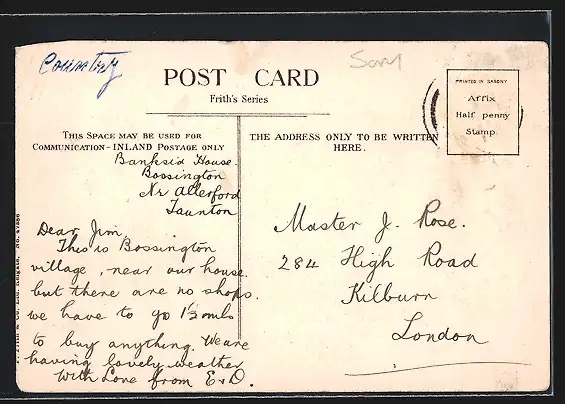 Country
Som
POST CARD
Frith's Series
PRINTED IN SAXONY
Affix
Half penny
Stamp.
THIS SPACE MAY BE USED FOR
COMMUNICATION - INLAND POSTAGE ONLY
THE ADDRESS ONLY TO BE WRITTEN
HERE.
Banksid House.
Bossington
Nr Allerford
Taunton
Dear Jim,
This is Bossington
village, near our house
but there are no shops.
we have to go 1½ mls
to buy anything. We are
having lovely weather
With Love from E & D.
Master J. Rose.
284 High Road
Kilburn
London